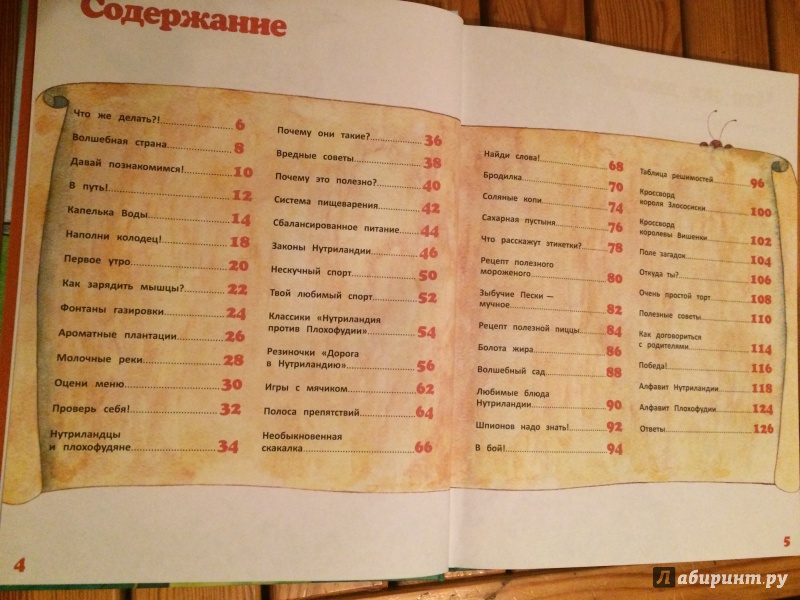 Содержание
Что же делать?! 6
Волшебная страна 8
Давай познакомимся! 10
В путь! 12
Капелька Воды 14
Наполни колодец! 18
Первое утро 20
Как зарядить мышцы? 22
Фонтаны газировки 24
Ароматные плантации 26
Молочные реки 28
Оцени меню 30
Проверь себя! 32
Нутриландцы
и плохофудяне 34
Почему они такие? 36
Вредные советы 38
Почему это полезно? 40
Система пищеварения 42
Сбалансированное питание 44
Законы Нутриландии 46
Нескучный спорт 50
Твой любимый спорт 52
Классики «Нутриландия
против Плохофудии» 54
Резиночки «Дорога
в Нутриландию» 56
Игры с мячиком 62
Полоса препятствий 64
Необыкновенная
скакалка 66
4
Найди слова! 68
Бродилка 70
Соляные копи 74
Сахарная пустыня 76
Что расскажут этикетки? 78
Рецепт полезного
мороженого 80
Зыбучие Пески —
мучное 82
Рецепт полезной пиццы 84
Болота жира 86
Волшебный сад 88
Любимые блюда
Нутриландии 90
Шпионов надо знать! 92
В бой! 94
Таблица решимостей 96
Кроссворд
короля Злососиски 100
Кроссворд
королевы Вишенки 102
Поле загадок 104
Откуда ты? 106
Очень простой торт 108
Полезные советы 110
Как договориться
с родителями 114
Победа! 116
Алфавит Нутриландии 118
Алфавит Плохофудии 124
Ответы 126
5
Лабиринт.ру